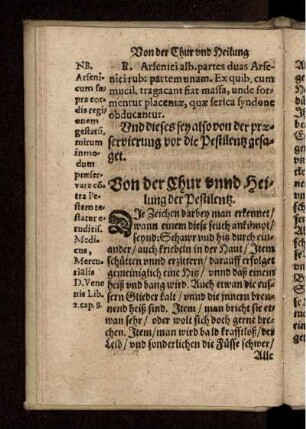 Von der Chur vnd Heilung
NB.
Arseni-
cum su-
pra cor-
dis regi-
onem
gestatū,
mirum
inmo-
dum
præser-
vare cō-
tra Pe-
stem te-
statur e-
ruditiſ.
Medi-
cus,
Mercu-
rialis
D. Vene
nis Lib.
2. cap. 8.
R. Arsenici alb. partes duas Arse-
nici rub: partem unam. Ex quib, cum
mucil. tragacant fiat massa, unde for-
mentur placentæ, quæ serica syndone
obducantur.
Vnd dieses sey also von der præ-
servierung vor die Pestilentz gesa-
get.
Von der Chur vnnd Hei-
lung der Pestilentz.
DIe Zeichen darbey man erkennet/
wann einem diese seuch ankompt/
seynd: Schawr vnd hitz durch ein-
ander/ auch kriebeln in der Haut/ Item
schütten vnnd erzittern/ darauff erfolget
gemeiniglich eine Hitz/ vnnd daß einem
heiß vnd bang wird. Auch etwan die eus-
sern Glieder kalt/ vnnd die innern bren-
nend heiß sind. Item/ man bricht sie et-
wan sehr/ oder wolt sich doch gerne bre-
chen. Item/ man wird bald krafftloß/ der
Leib/ vnd sonderlichen die Füsse schwer/
Alle